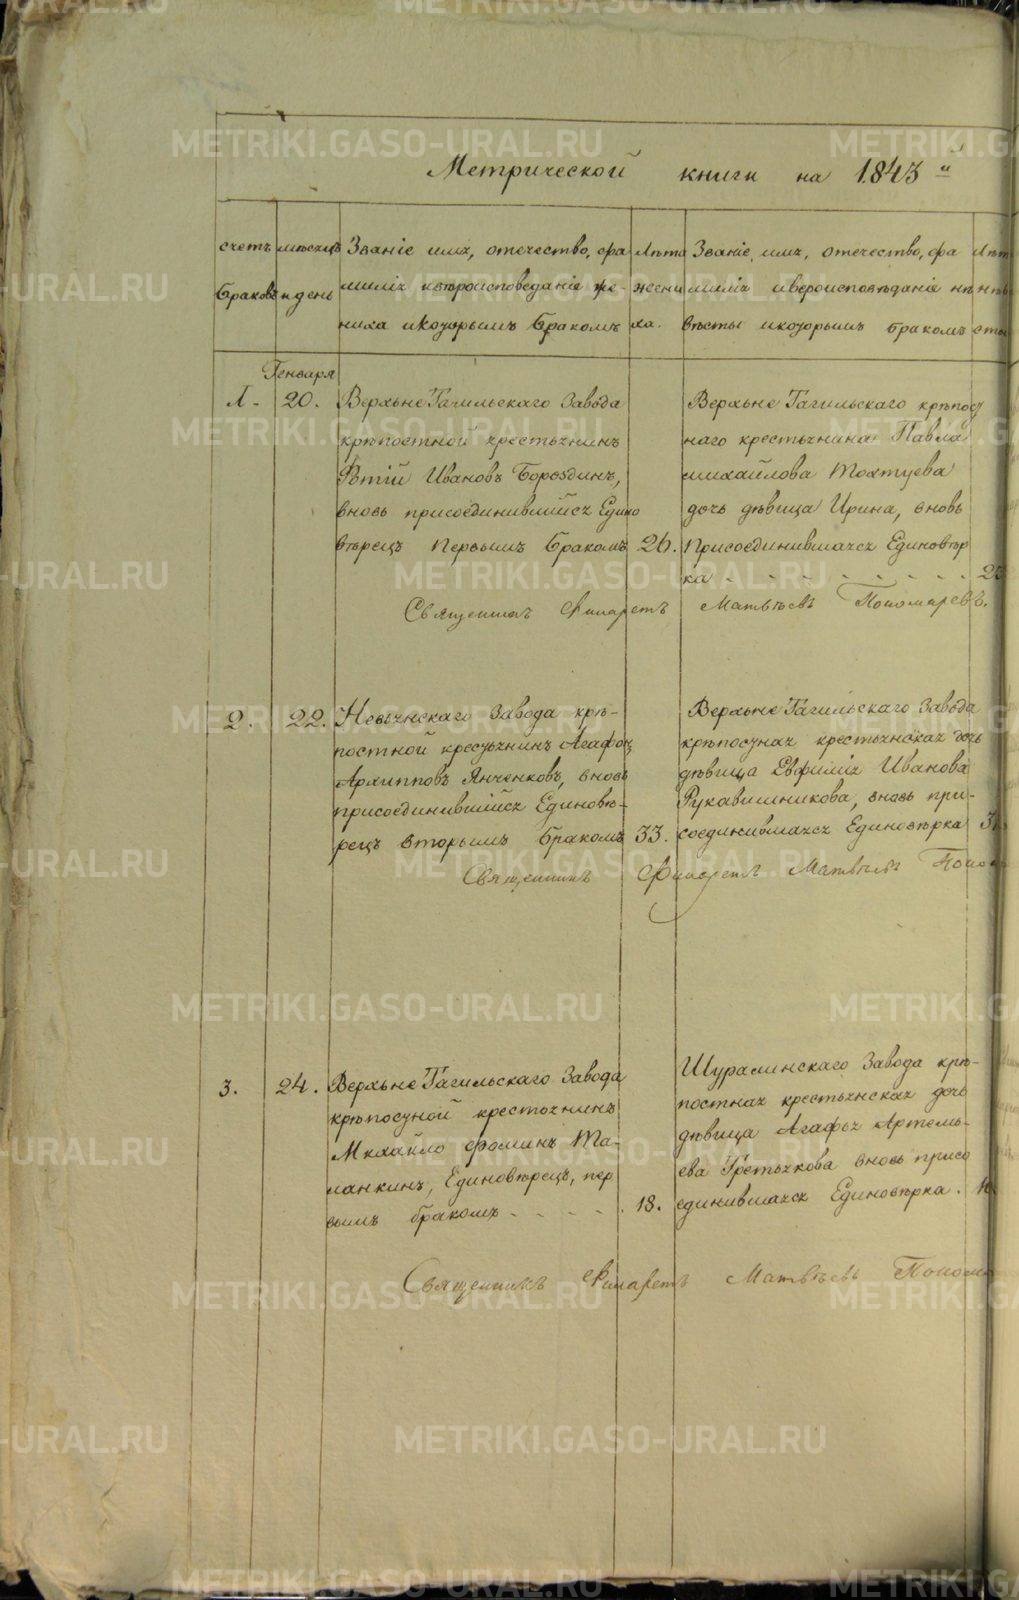 Метрической книги на 1843й
счетъ браковъ
мѣсяцъ и день
Званіе имя, отечество, фа
милія и вѣроисповеданіе же-
ниха и которымъ бракомъ
Лѣта
жени
ха.
Званіе, имя, отечество, фа
милія и вероисповѣданіе не
вѣсты и которымъ бракомъ
Лѣт
Генваря
1. 20.
Верхъне Тагильскаго Завода
крѣпостной крестьянинъ
Фотій Ивановъ Бороздинъ,
вновь присоединившійся Едино
вѣрецъ первымъ бракомъ 26.
Верхъне Тагильскаго крѣпост
наго крестьянина Павла
Михайлова Тохтуева
дочь дѣвица Ирина, вновь
присоединившаяся Единовѣр
ка
Священникъ Филаретъ Матвѣевъ Пономаревъ.
2. 22.
Невьянскаго Завода крѣ-
постной крестьянинъ Агафон
Архипповъ Янченковъ, вновь
присоединившійся Единовѣ-
рецъ вторымъ бракомъ 33.
Верхьне Тагильскаго Завода
крѣпостная крестьянская дочь
дѣвица Евфимія Иванова
Рукавишникова, вновь при-
соединившаяся Единовѣрка
Священникъ Филаретъ Матвѣевъ Поно
3. 24.
Верхьне Тагильскаго Завода
крѣпостной крестьянинъ
Михайло Фоминъ Та-
ланкинъ, Единовѣрецъ, пер
вымъ бракомъ 18.
Шуралинскаго Завода крѣ-
постная крестьянская дочь
дѣвица Агафья Артемь-
ева Третьякова вновь присо
единившаяся Единовѣрка.
Священникъ Филаретъ Матвѣевъ Поном
METRIKI.GASO-URAL.RU